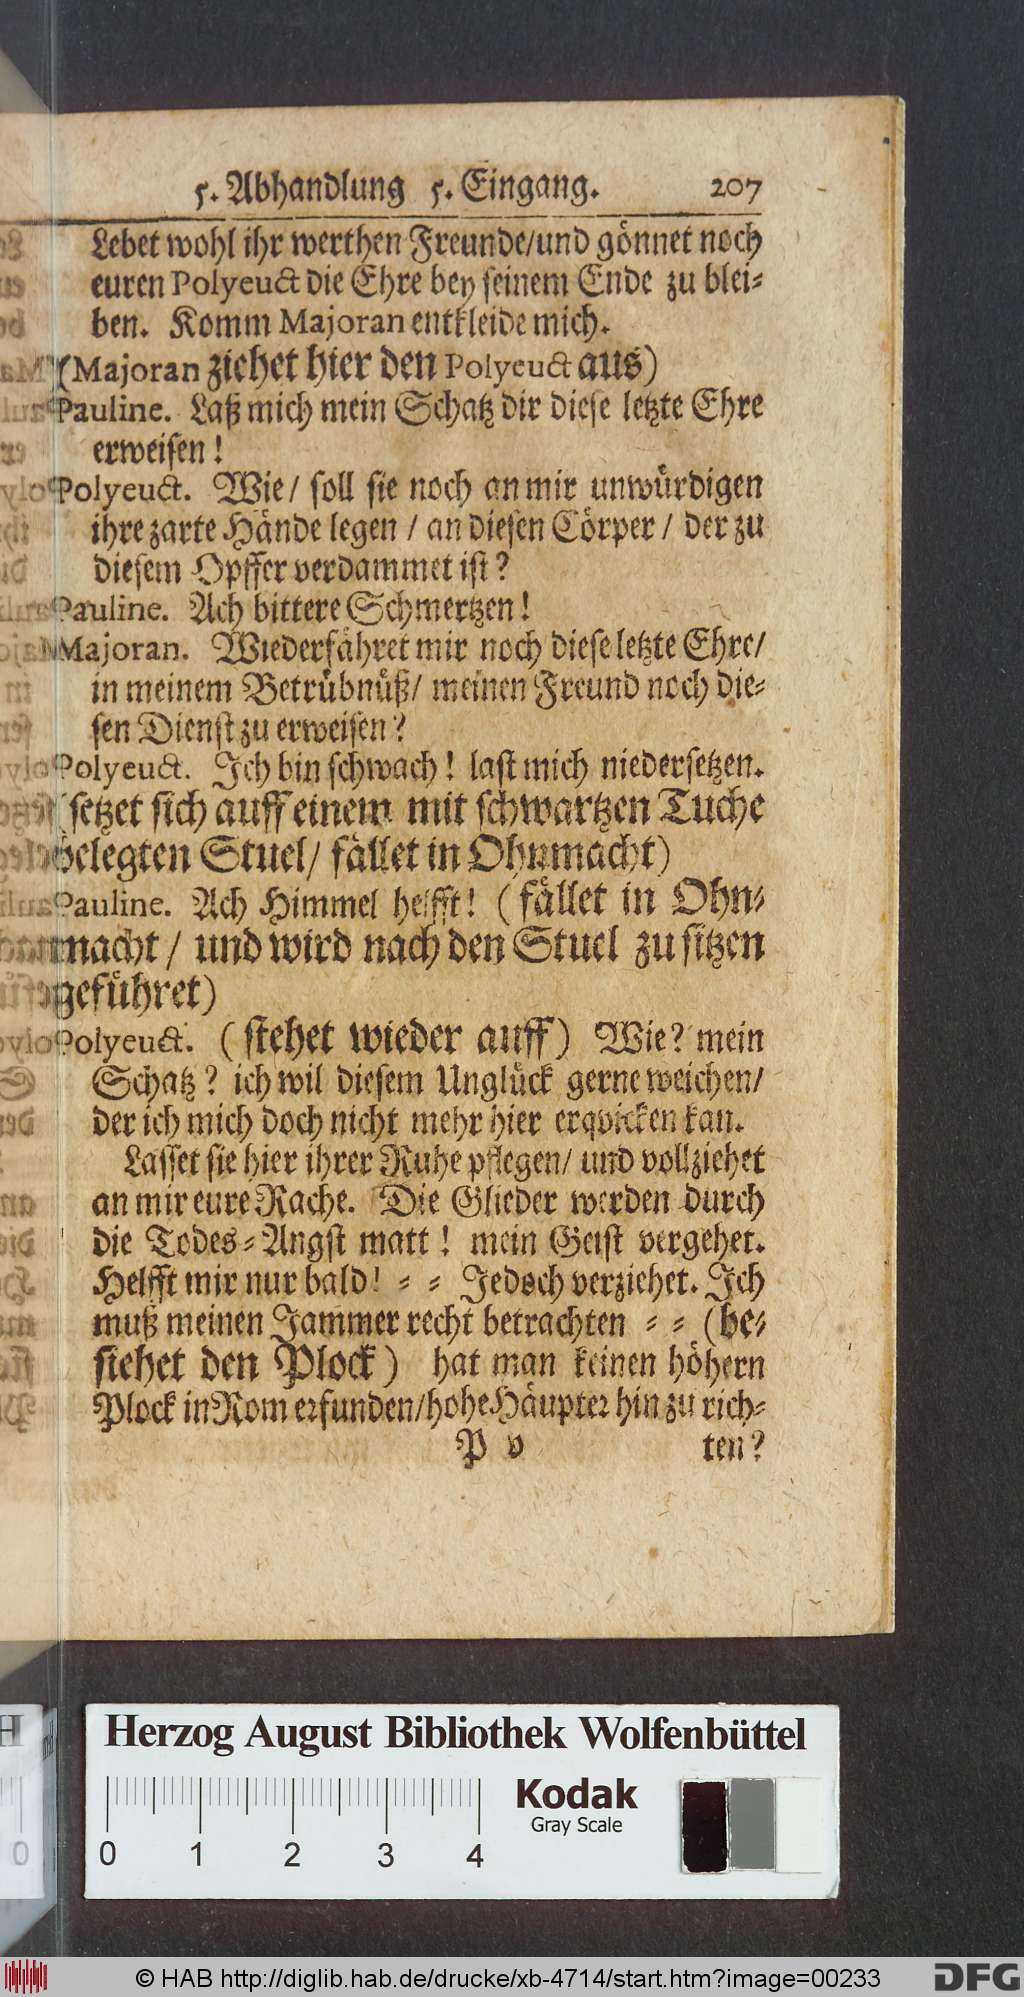 5. Abhandlung 5. Eingang. 207
Lebet wohl ihr werthen Freunde/und gönnet noch
euren Polyeuct die Ehre bey seinem Ende zu blei-
ben. Komm Majoran entkleide mich.
(Majoran ziehet hier den Polyeuct aus)
Pauline. Laß mich mein Schatz dir diese letzte Ehre
erweisen!
Polyeuct. Wie/ soll sie noch an mir unwürdigen
ihre zarte Hände legen / an diesen Cörper / der zu
diesem Opffer verdammet ist?
Pauline. Ach bittere Schmertzen!
Majoran. Wiederfähret mir noch diese letzte Ehre/
in meinem Betrübnüß/ meinen Freund noch die-
sen Dienst zu erweisen?
Polyeuct. Ich bin schwach! last mich niedersetzen.
(setzet sich auff einem mit schwartzen Tuche
belegten Stuel/ fället in Ohnmacht)
Pauline. Ach Himmel helfft! (fället in Ohn-
macht / und wird nach den Stuel zu sitzen
geführet)
Polyeuct. (stehet wieder auff) Wie? mein
Schatz? ich wil diesem Unglück gerne weichen/
der ich mich doch nicht mehr hier erqvicken kan.
Lasset sie hier ihrer Ruhe pflegen/ und vollziehet
an mir eure Rache. Die Glieder werden durch
die Todes-Angst matt! mein Geist vergehet.
Helfft mir nur bald! - - Jedoch verziehet. Ich
muß meinen Jammer recht betrachten - - (be-
siehet den Plock) hat man keinen höhern
Plock in Rom erfunden/hohe Häupter hin zu rich-
P v ten?
Herzog August Bibliothek Wolfenbüttel
Kodak
Gray Scale
0 1 2 3 4
© HAB http://diglib.hab.de/drucke/xb-4714/start.htm?image=00233
DFG